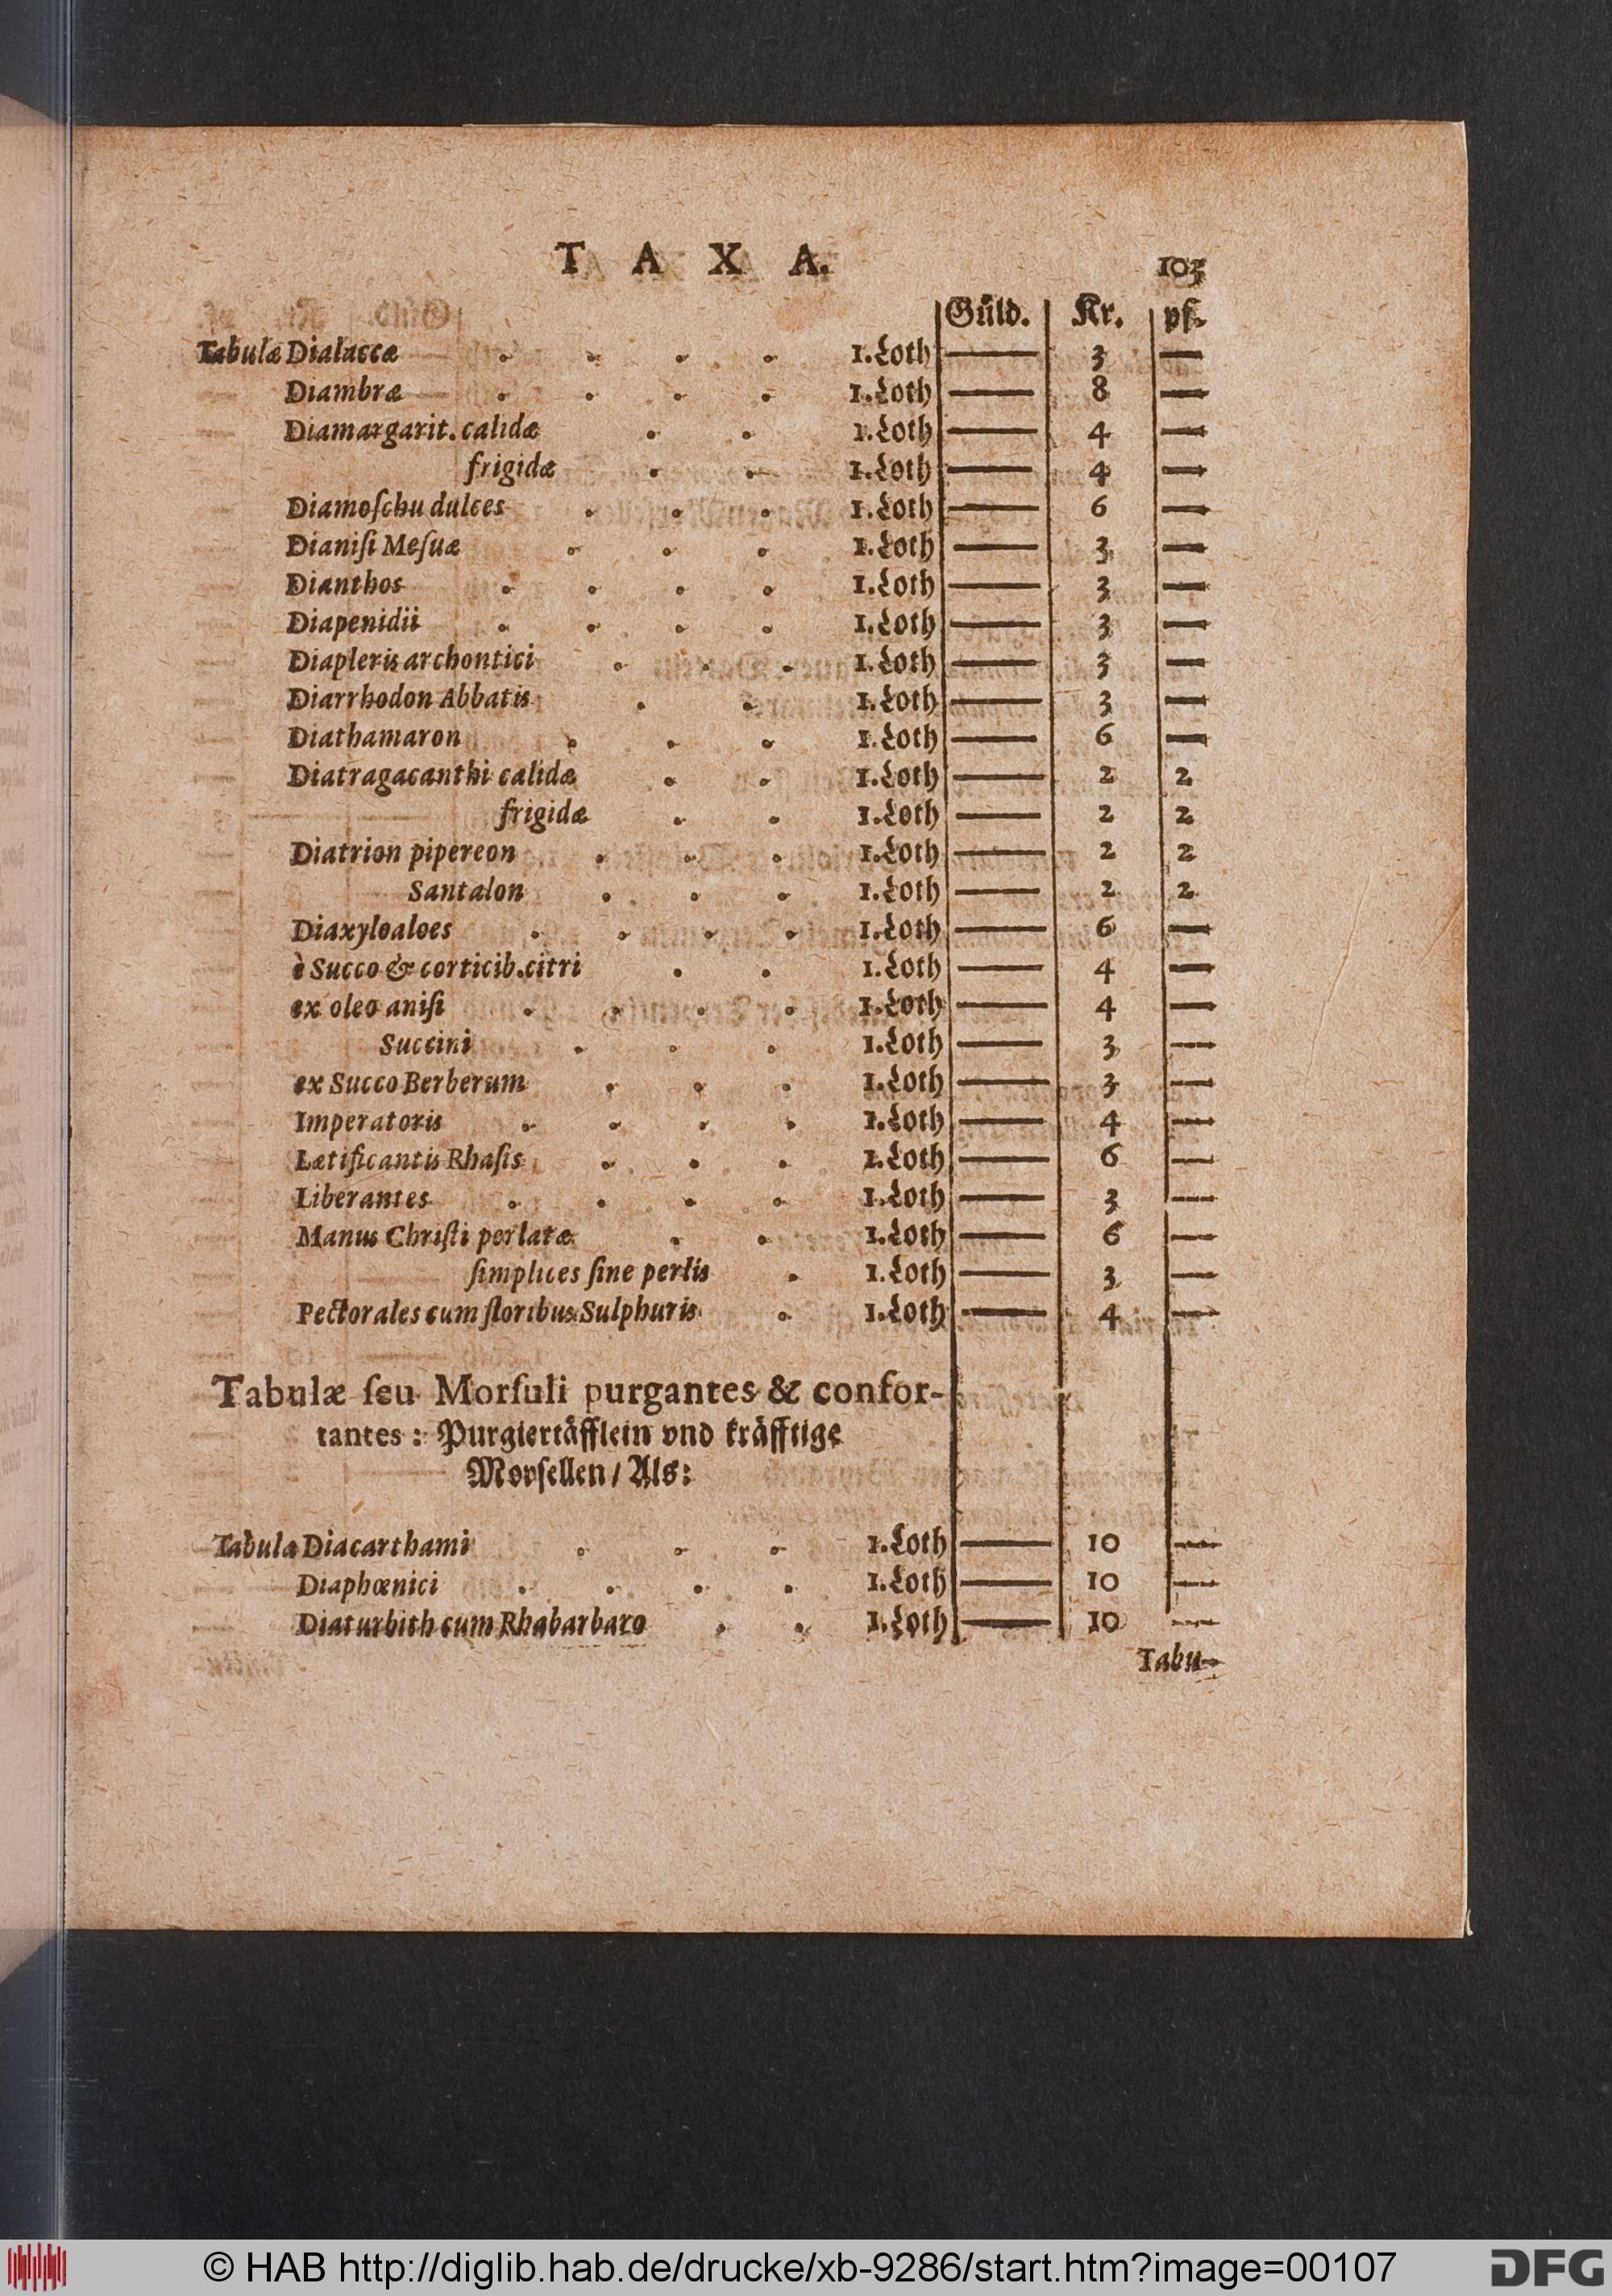 T A X A. 103
Güld. Kr. pf.
Tabulæ Dialaccæ . . . . 1. Loth — 3 —
Diambræ . . . . 1. Loth — 8 —
Diamargarit. calidæ . . 1. Loth — 4 —
frigidæ . . 1. Loth — 4 —
Diamoſchu dulces . . . 1. Loth — 6 —
Dianiſi Meſuæ . . . 1. Loth — 3 —
Dianthos . . . . 1. Loth — 3 —
Diapenidii . . . . 1. Loth — 3 —
Diapleris archontici . . . 1. Loth — 3 —
Diarrhodon Abbatis . . 1. Loth — 3 —
Diathamaron . . . 1. Loth — 6 —
Diatragacanthi calidæ . . 1. Loth — 2 2
frigidæ . . 1. Loth — 2 2
Diatrion pipereon . . . 1. Loth — 2 2
Santalon . . . 1. Loth — 2 2
Diaxyloaloes . . . . 1. Loth — 6 —
è Succo & corticib. citri . . 1. Loth — 4 —
ex oleo aniſi . . . . 1. Loth — 4 —
Succini . . . 1. Loth — 3 —
ex Succo Berberum . . . 1. Loth — 3 —
Imperatoris . . . . 1. Loth — 4 —
Lætificantis Rhaſis . . . 1. Loth — 6 —
Liberantes . . . . 1. Loth — 3 —
Manus Chriſti perlatæ . . 1. Loth — 6 —
ſimplices ſine perlis . 1. Loth — 3 —
Pectorales cum floribus Sulphuris . 1. Loth — 4 —
Tabulæ ſeu Morſuli purgantes & confor-
tantes: Purgiertäfflein vnd kräfftige
Morſellen / Als:
Tabula Diacarthami . . . 1. Loth — 10 —
Diaphœnici . . . . 1. Loth — 10 —
Diaturbith cum Rhabarbaro . . 1. Loth — 10 —
Tabu-
© HAB http://diglib.hab.de/drucke/xb-9286/start.htm?image=00107 DFG